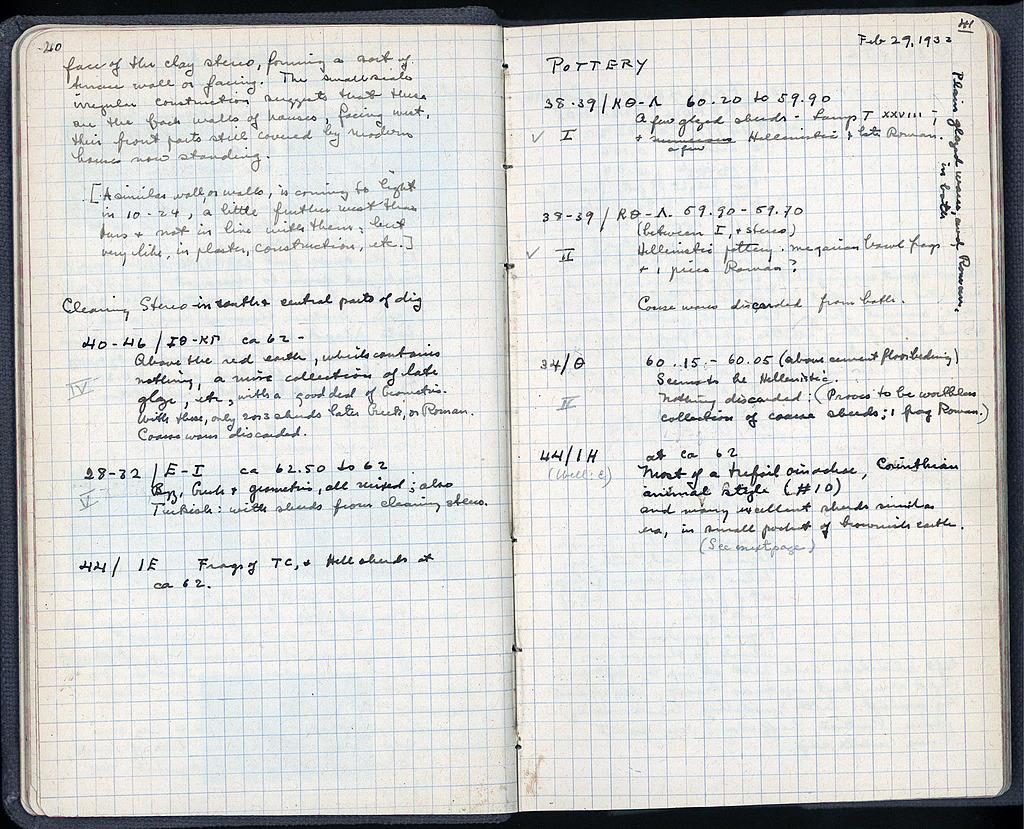 40
face of the clay stereo, forming a sort of
terrace wall or facing. The small scale
irregular construction suggests that these
are the back walls of houses, facing west,
their front parts still covered by modern
houses now standing.
[A similar wall, or walls, is coming to light
in 10-24, a little further west than
this & not in line with them; but
very like, in plaster, construction, etc.]
Clearing Stereo in south & central parts of dig
40-46 / ΙΘ-ΚΓ ca 62 -
Above the red earth, which contains
nothing, a mixed collection of late
IV glaze, etc, with a good deal of Geometric.
With these, only 2 or 3 sherds later Greek, or Roman.
Coarse ware discarded.
28-32 / Ε-Ι ca 62.50 to 62
V Byz, Greek & geometric, all mixed; also
Turkish: with sherds from cleaning stereo.
44/ ΙΕ Frags of TC, & Hell sherds at
ca 62.
41
Feb 29, 1932
POTTERY
38-39 / ΚΘ-Λ 60.20 to 59.90
A few glazed sherds - Lamps T XXVIII;
✓ I & numerous Hellenistic & late Roman.
a few
38-39 / ΚΘ-Λ. 59.90-59.70
(between I, & stereo)
✓ II Hellenistic pottery. megarian bowl frags
& 1 piece Roman?
Coarse wares discarded from both.
Plain glazed wares, and Roman,
in both
34/Θ 60.15 - 60.05 (above cement floor bedding)
Seems to be Hellenistic.
II Nothing discarded: (Proves to be worthless
collection of coarse sherds; 1 frag Roman.)
44/ΙΗ at ca 62
(Well: E) Most of a trefoil oinochoe, Corinthian
animal style (#10)
and many excellent sherds similar
era, in small pocket of brownish earth.
(See next page)